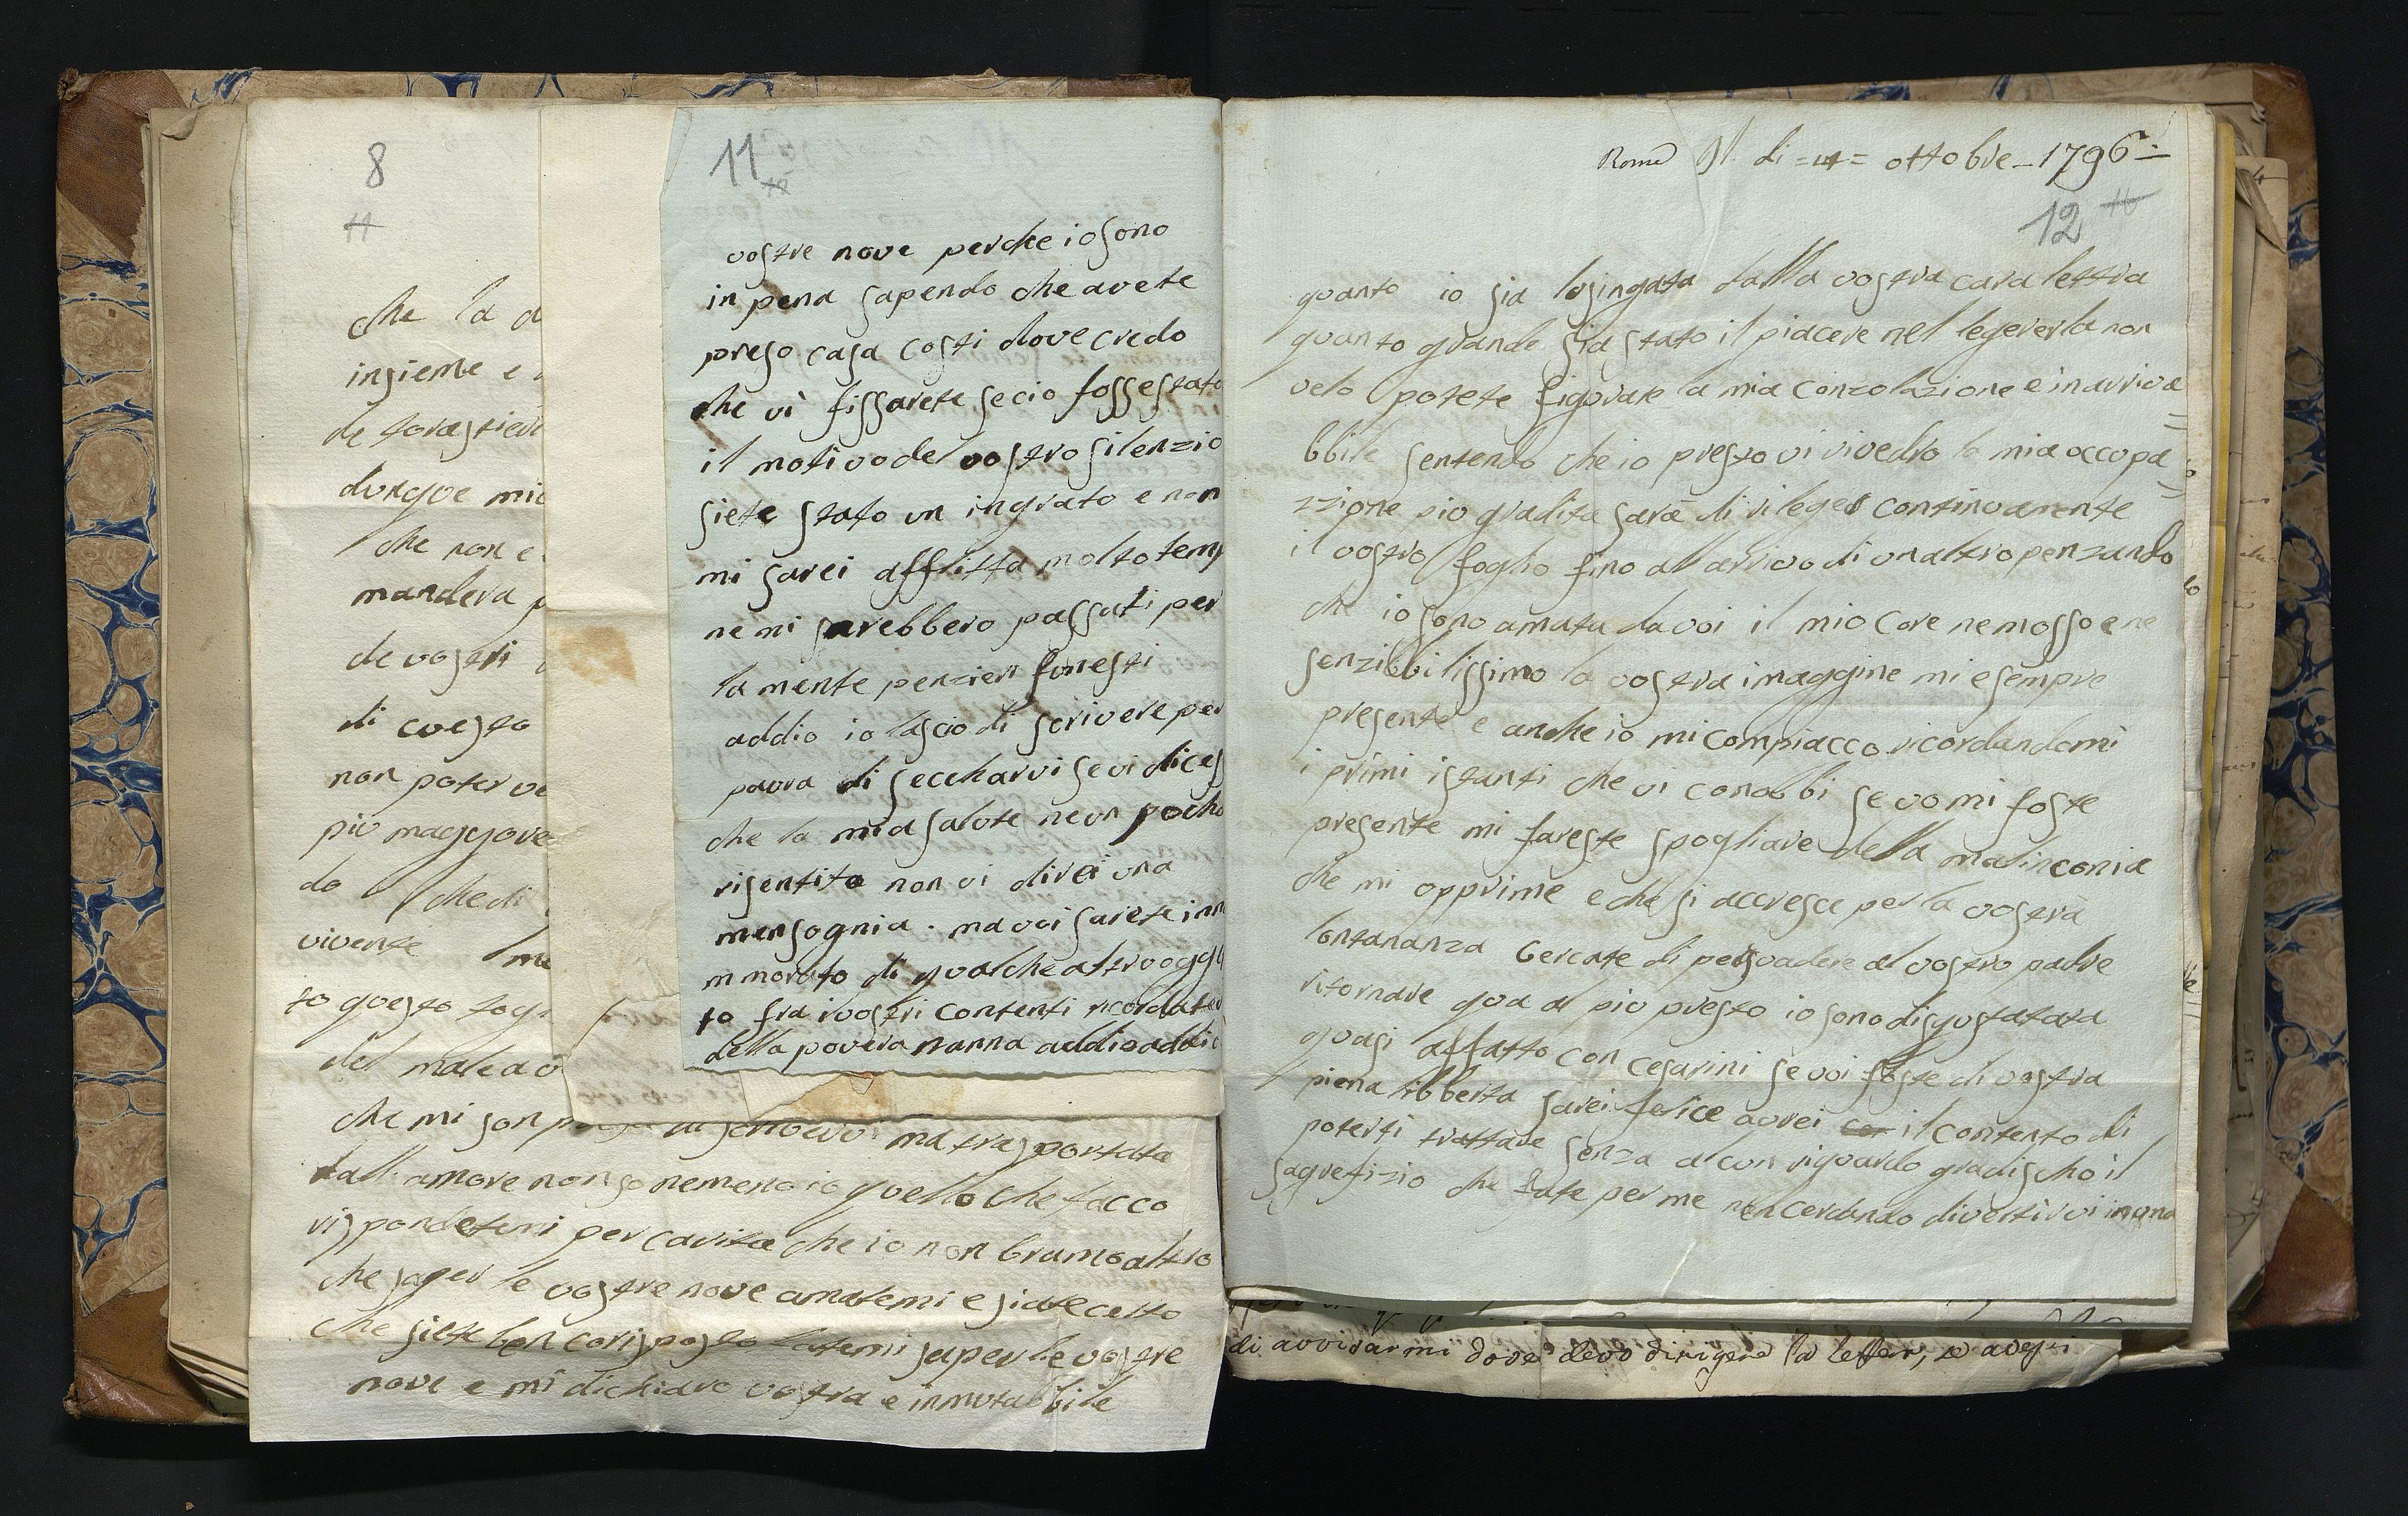 8
11
che la a
insieme e
de forastieri
dunque mio
che non e
mandera p
de vostri
di cuesto
non poter ve
piu maggore
do che di
vivente me
to questo fog
del male a v
che mi son ma trasportata
dall amore non so nemeno io quello che facco
rispondetemi per carita che io non bramo altro
che saper le vostre nove amatemi e siate certo
che siete ben corisposto fatemi saper le vostre
nove e mi dichiaro vostra e inmutabbile
11
vostre nove perche io sono
in pena sapendo che avete
preso casa costi dove credo
che vi fissarete se cio fosse stato
il motivo del vostro silenzio
siete stato un ingrato e non
mi sarei afflitta molto temp
ne mi sarebbero passati per
la mente penzieri funesti
addio io lascio di scrivere per
paura di seccharvi se vi dices
che la mia salute ne un pocho
risentita non vi direi una
mensognia . ma voi sarete inn
mmorato di qualche altro ogge
to fra i vostri contenti ricordatev
della povera nanna addio addio
Roma Il di = 14 = ottobre - 1796 =
12 16
quanto io sia lusingata dalla vostra cara lettra
quanto grande sia stato il piacere nel legererla non
velo potete figurare la mia conzolazione e inarriva
bbile sentendo che io presto vi rivedro la mia occupa
zzione piu gradita sarà di rileger continuamente
il vostro foglio fino al arrivo di un altro penzando
che io sono amata da voi il mio core ne mosso e ne
senzibbilissimo la vostra imaggine mi e sempre
presente e anche io mi compiacco ricordandomi
i primi istanti che vi conobbi se vo mi foste
presente mi fareste spogliare della malinconia
che mi opprime e che si accresce per la vostra
lontananza cercate di persuadere al vostro padre
ritornare qua al piu presto io sono disgustatata
quasi affatto con cesarini se voi foste di vostra
piena libberta sarei felice avrei con il contento di
poterti trattare senza alcun riguardo gradischo il
sagrefizio che fate per me non cercando divertirvi in una
di avvisarmi dove devo dirigere la letter, se avessi